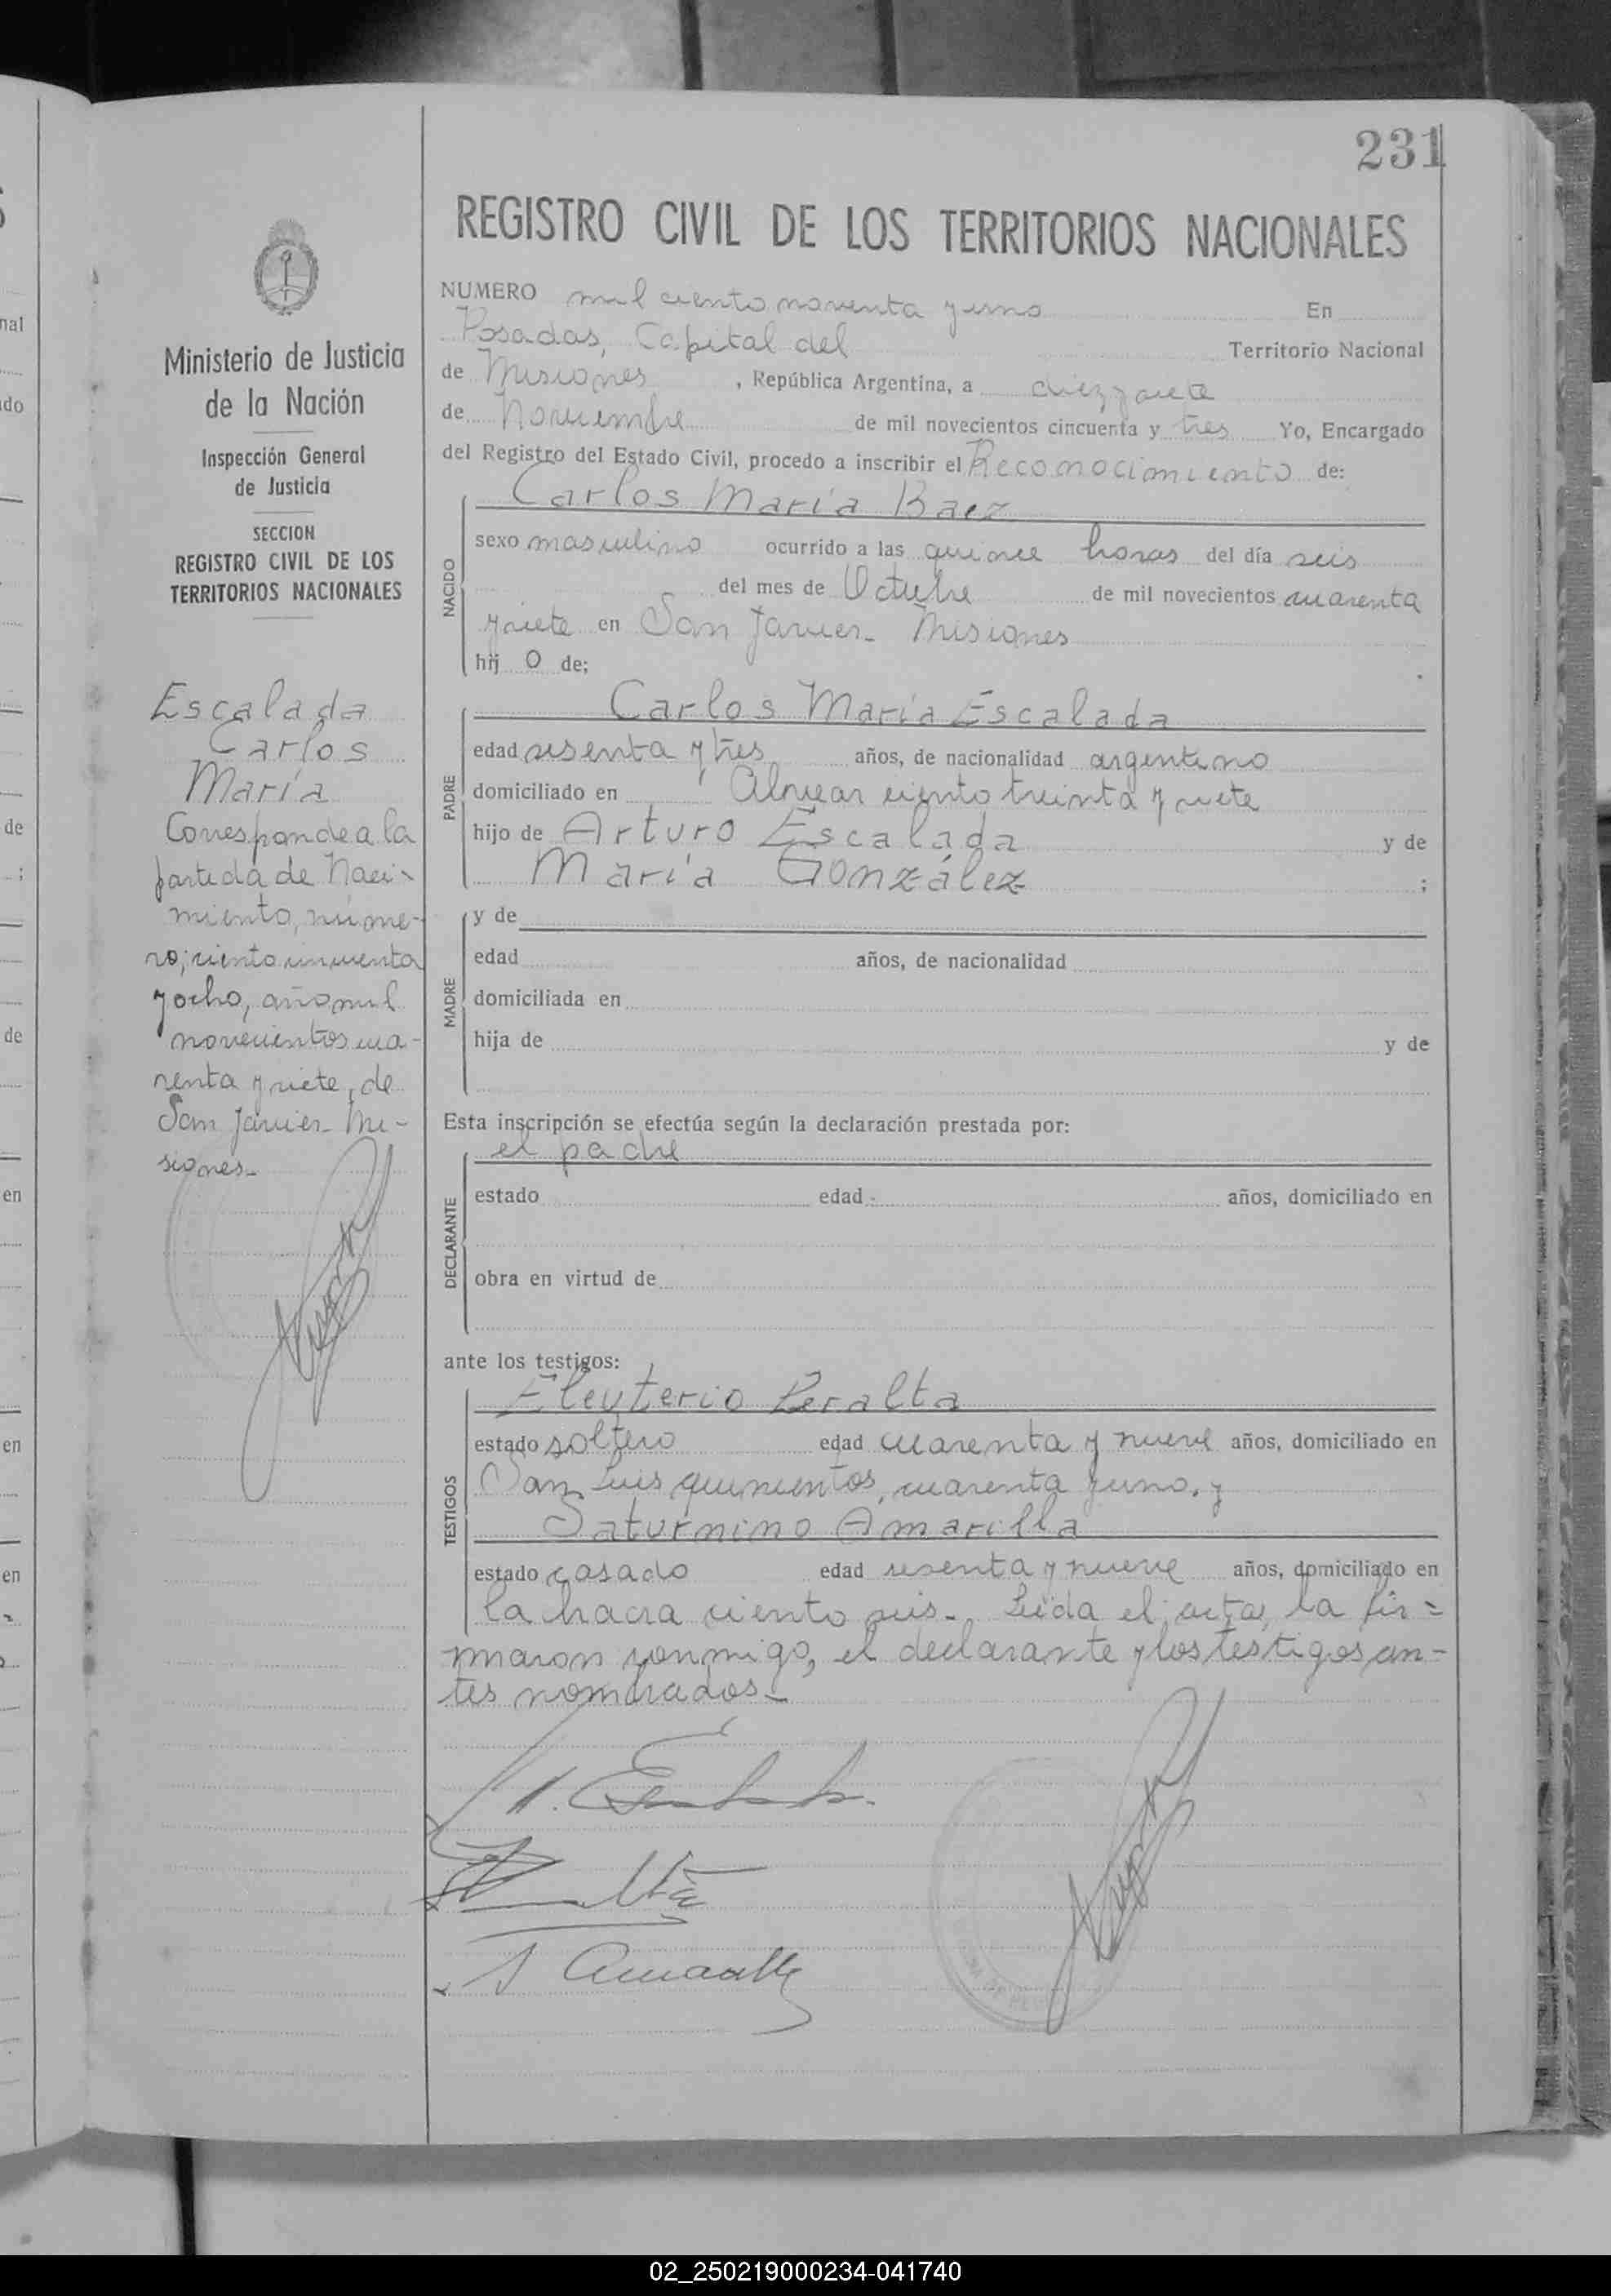 231
REGISTRO CIVIL DE LOS TERRITORIOS NACIONALES
Ministerio de Justicia
de la Nación
Inspección General
de Justicia
SECCION
REGISTRO CIVIL DE LOS
TERRITORIOS NACIONALES
Escalada
Carlos
María
Corresponde a la
partida de Naci-
miento, núme-
ro; ciento cincuenta
y ocho, año mil
novecientos cua-
renta y siete, de
San Javier- Mi-
siones-
NUMERO mil ciento noventa y uno En
Posadas, Capital del Territorio Nacional
de Misiones, República Argentina, a diez y siete
de Noviembre de mil novecientos cincuenta y tres Yo, Encargado
del Registro del Estado Civil, procedo a inscribir el Reconocimiento de:
Carlos María Baez
NACIDO
sexo masculino ocurrido a las quince horas del día seis
del mes de Octubre de mil novecientos cuarenta
y siete en San Javier- Misiones
hij o de;
Carlos María Escalada
PADRE
edad sesenta y tres años, de nacionalidad argentino
domiciliado en Alvear ciento treinta y siete
hijo de Arturo Escalada y de
María González ;
MADRE
y de
edad años, de nacionalidad
domiciliada en
hija de y de
Esta inscripción se efectúa según la declaración prestada por:
el padre
DECLARANTE
estado edad años, domiciliado en
obra en virtud de
ante los testigos:
Eleuterio Peralta
TESTIGOS
estado soltero edad cuarenta y nueve años, domiciliado en
San Luis quinientos cuarenta y uno, y
Saturnino Amarilla
estado casado edad sesenta y nueve años, domiciliado en
la chacra ciento seis-. Leída el acta, la fir=
maron conmigo, el declarante y los testigos an-
tes nombrados-
S Amarilla
nal
do
de
de
en
en
en
02_250219000234-041740